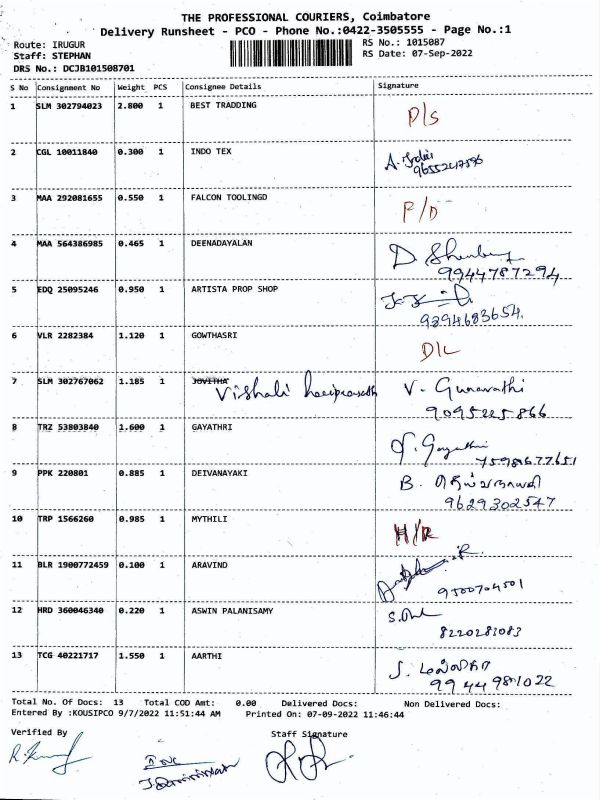 THE PROFESSIONAL COURIERS, Coimbatore
Delivery Runsheet - PCO - Phone No.:0422-3505555 - Page No.:1
Route: IRUGUR RS No.: 1015087
Staff: STEPHAN RS Date: 07-Sep-2022
DRS No.: DCJB101508701
S No Consignment No Weight PCS Consignee Details Signature
1 SLM 302794023 2.800 1 BEST TRADDING D/S
2 CGL 10011840 0.300 1 INDO TEX
3 MAA 292081655 0.550 1 FALCON TOOLINGD F/D
4 MAA 564386985 0.465 1 DEENADAYALAN D.
9944787294
5 EDQ 25095246 0.950 1 ARTISTA PROP SHOP
9894683654.
6 VLR 2282384 1.120 1 GOWTHASRI D/L
7 SLM 302767062 1.185 1 JOVITHA Vishali hariprasath V. Gunavathi
9095225866
8 TRZ 53803840 1.600 1 GAYATHRI Gayathri
7598677651
9 PPK 220801 0.885 1 DEIVANAYAKI B. தெய்வநாயகி
9629302547
10 TRP 1566260 0.985 1 MYTHILI H/R
11 BLR 1900772459 0.100 1 ARAVIND
9500704501
12 HRD 360046340 0.220 1 ASWIN PALANISAMY
8220281083
13 TCG 40221717 1.550 1 AARTHI
9944981022
Total No. Of Docs: 13 Total COD Amt: 0.00 Delivered Docs: Non Delivered Docs:
Entered By :KOUSIPCO 9/7/2022 11:51:44 AM Printed On: 07-09-2022 11:46:44
Verified By Staff Signature